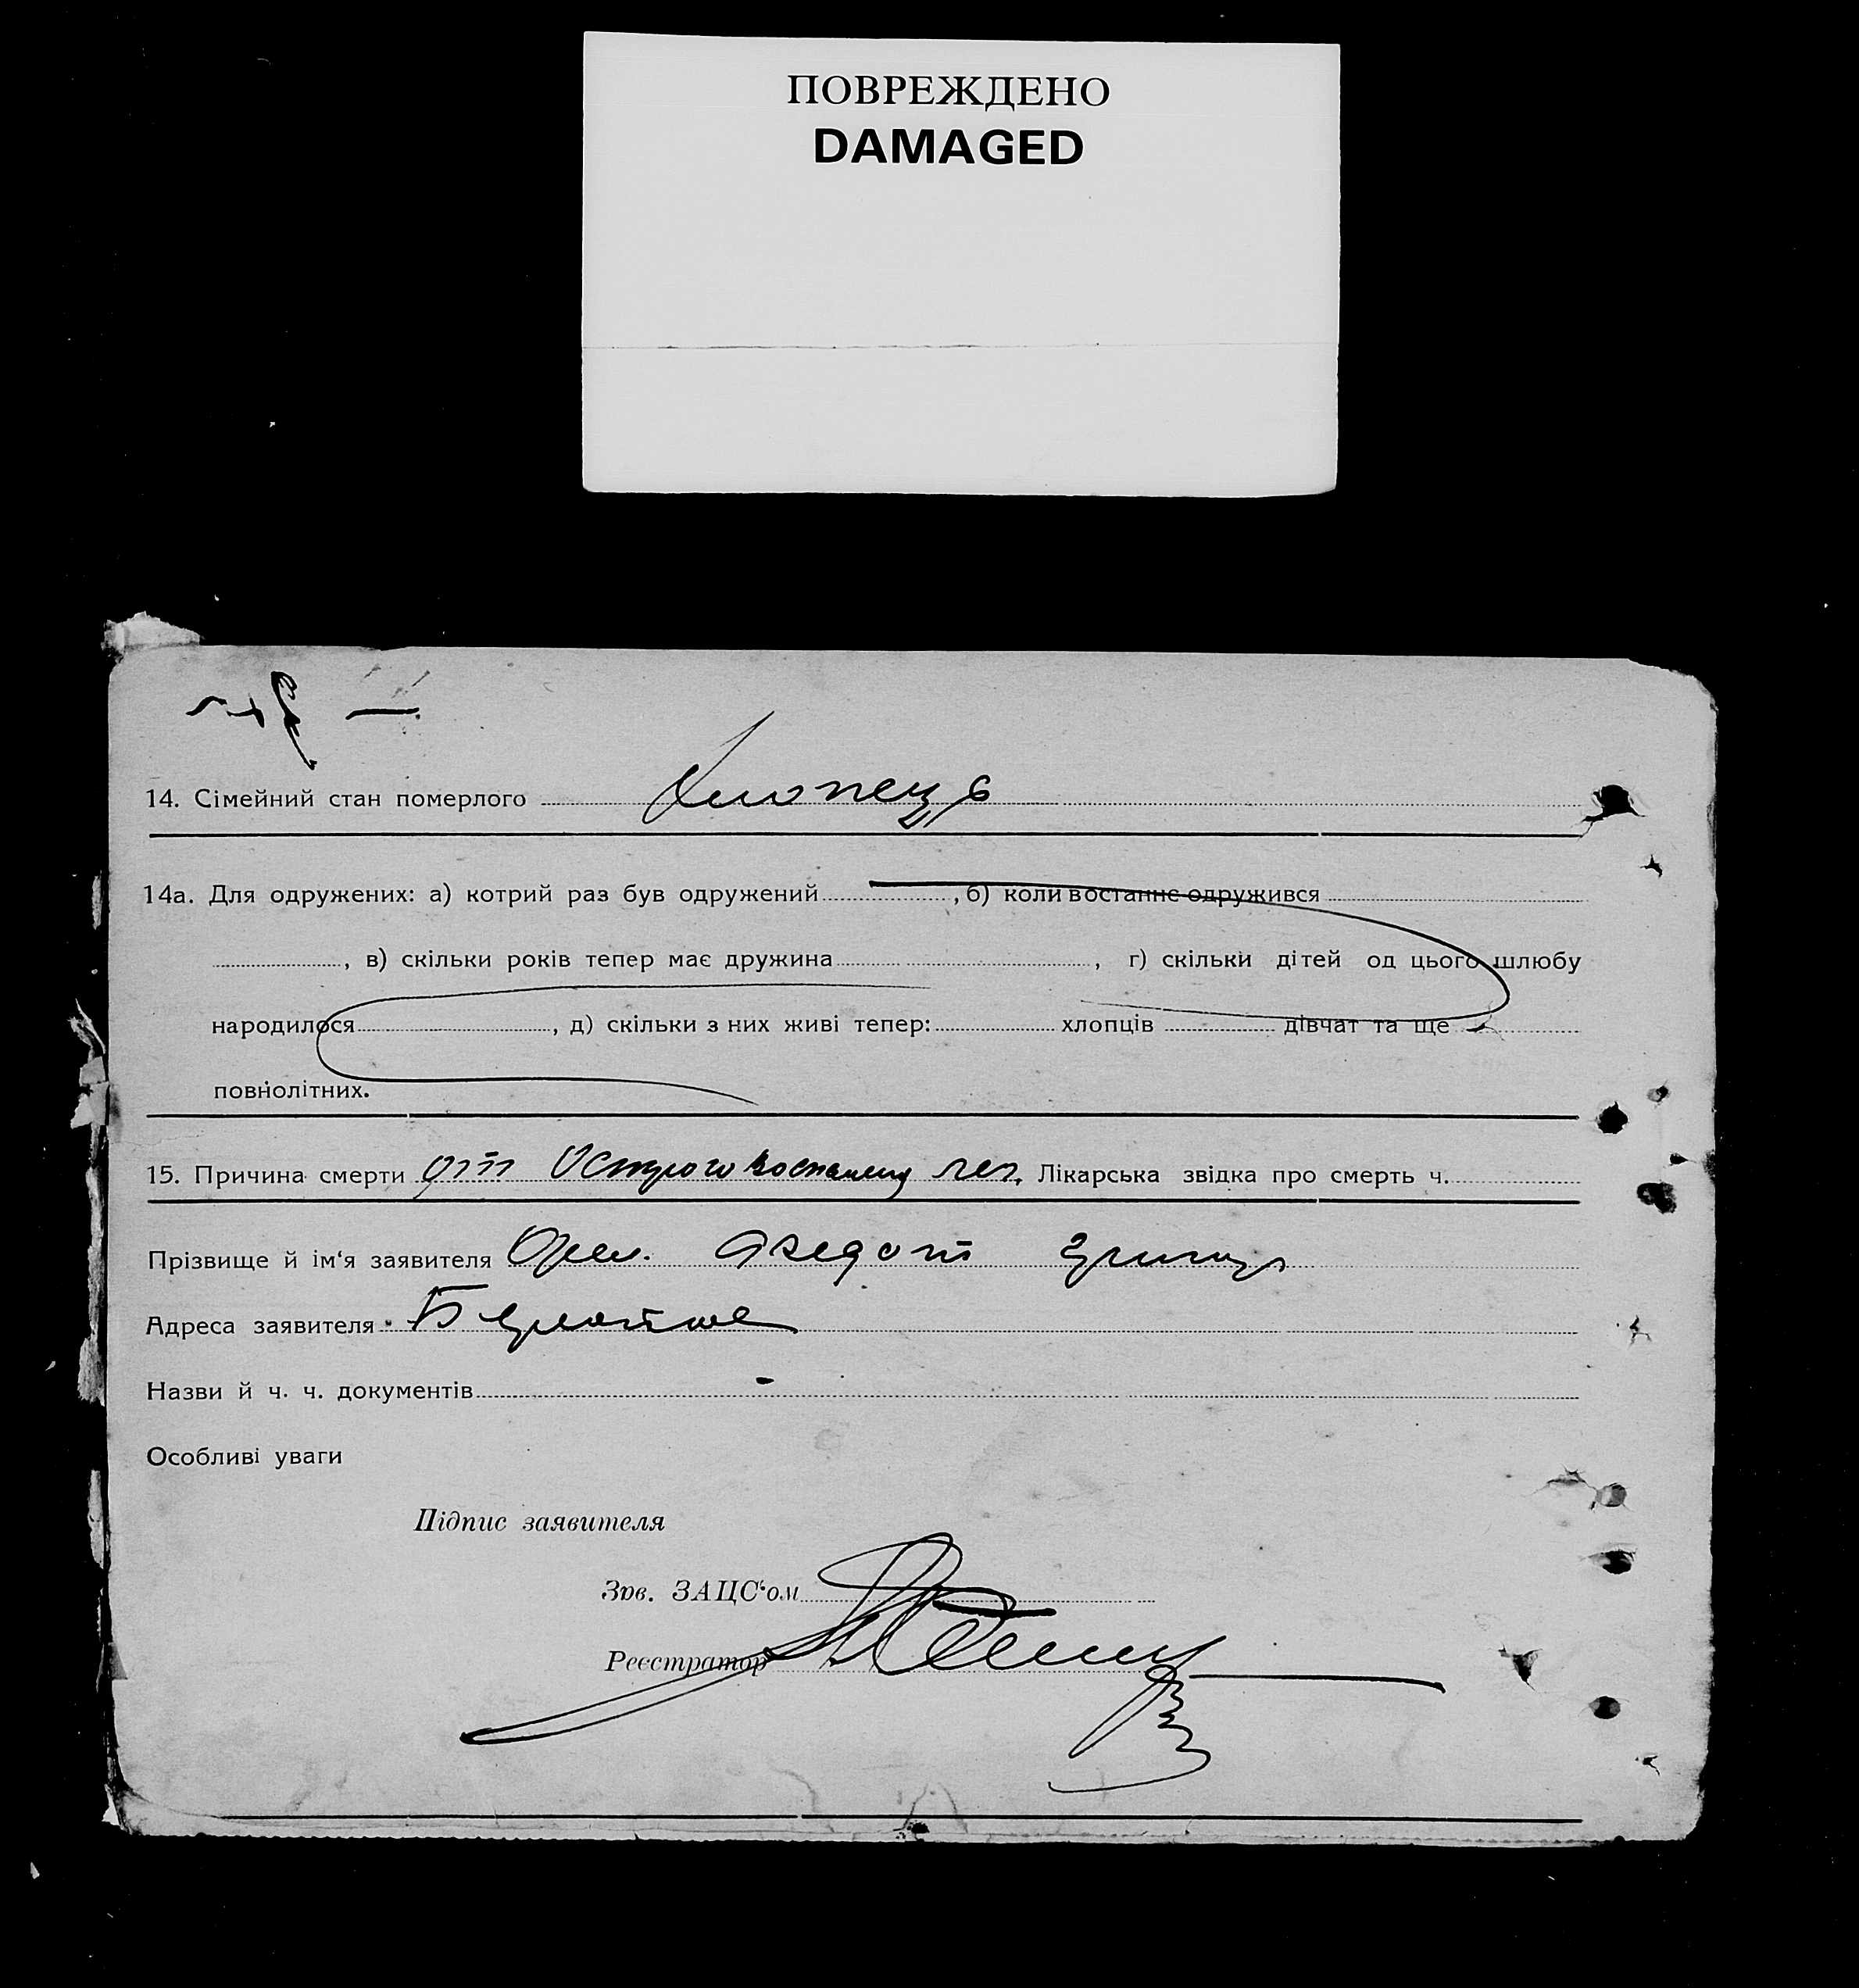 ПОВРЕЖДЕНО
DAMAGED
14. Сімейний стан померлого Хлопець
14а. Для одружених: а) котрий раз був одружений , б) коли востаннє одружився
, в) скільки років тепер має дружина , г) скільки дітей од цього шлюбу
народилося , д) скільки з них живі тепер: хлопців дівчат та ще
повнолітних.
15. Причина смерти от Острого воспаления лег. Лікарська звідка про смерть ч.
Прізвище й ім‘я заявителя Федот
Адреса заявителя
Назви й ч. ч. документів -
Особливі уваги
Підпис заявителя
Зов. ЗАЦС‘ом
Реєстратор